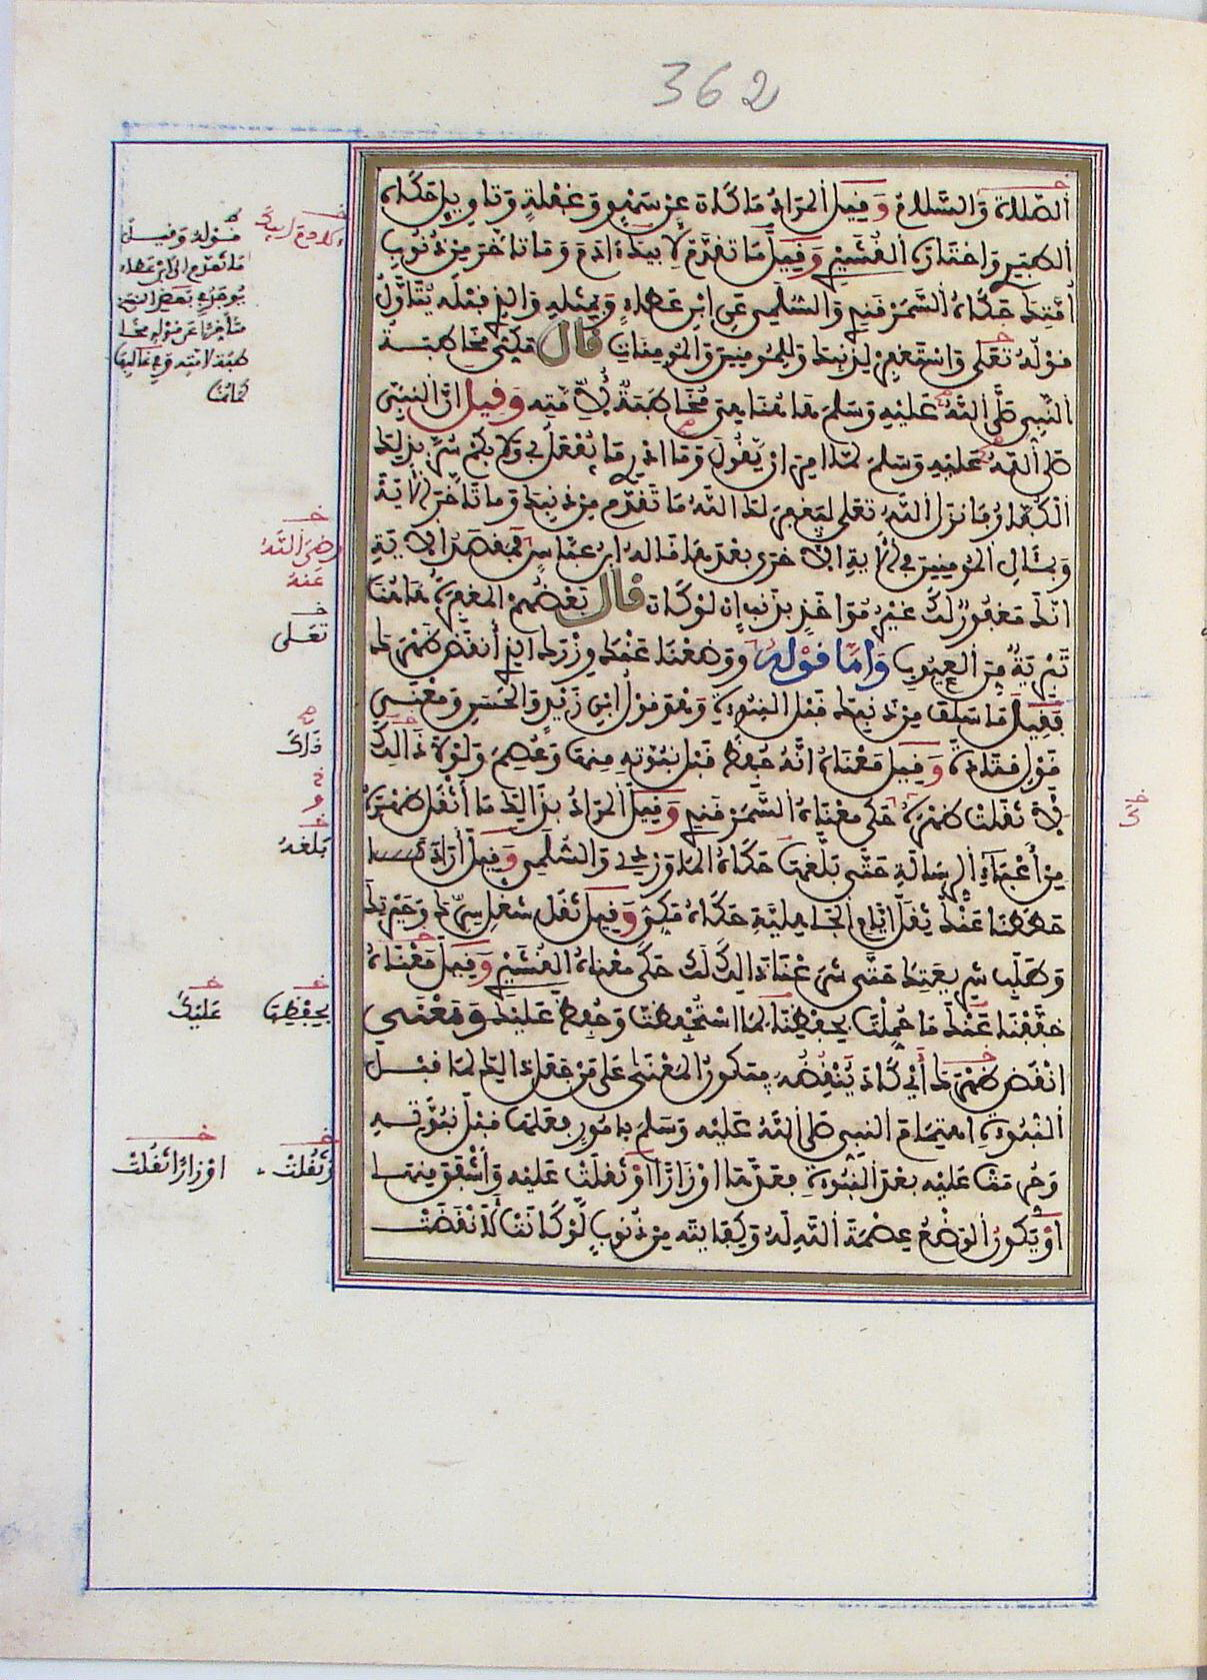 362
الصلاة والسلام وقيل المراد ما كان عن سهو وغفلة وتاويل حكاه
الطبري واختاره القشيري وقيل ما تقدم لابيك ادم وما تاخر من ذنوب
امتك حكاه السمرقندي والسلمي عن ابن عطاء وبمثله والذي قبله يتاول
قوله تعلى واستغفر لذنبك وللمومنين والمومنات قال مكي مخاطبة
النبي صلى الله عليه وسلم هاهنا هي مخاطبة لامته وقيل ان النبي
صلى الله عليه وسلم لما امر ان يقول وما ادري ما يفعل بي ولا بكم سر بذلك
الكفار فانزل الله تعلى ليغفر لك الله ما تقدم من ذنبك وما تاخر الاية
وبمئال المومنين في الاية الاخرى بعدها قاله ابن عباس فمقصد الاية
انك مغفور لك غير مواخذ بذنب ان لو كان قال بعضهم المغفرة هاهنا
تبرية من العيوب واما قوله ووضعنا عنك وزرك الذي أنقض ظهرك
فقيل ما سلف من ذنبك قبل النبوءة وهو قول ابن زيد والحسن ومعنى
قول قتادة وقيل معناه انه حفظ قبل نبوته منها وعصم ولولا ذالك
لاثقلت ظهره حكى معناه السمرقندي وقيل المراد بذالك ما أثقل ظهره
من أعباء الرسالة حتى بلغها حكاه الماوردي والسلمي وقيل أراد
حططنا عنك ثقل ايام الجاهلية حكاه مكي وقيل ثقل شغل سرك وحيرتك
وطلب شريعتك حتى شرعنا ذالك لك حكى معناه القشيري وقيل معناه
خففنا عنك ما حملت بحفظنا لما استحفظت وحفظ عليك ومعنى
انقض ظهرك أي كاد ينقضه فيكون المعنى على من جعل ذالك لما قبل
النبوءة اهتمام النبي صلى الله عليه وسلم بامور فعلها قبل نبوته
وحرمت عليه بعد النبوءة فعدها اوزارا وثقلت عليه وأشفق منها
او يكون الوضع عصمة الله له وكفايته من ذنوب لو كانت لانقضت
قوله وقيل
ما تقدم الى ابن عطاء
يوجد في بعض النسخ
متأخرا عن قوله مخا
طبة لامته وفي غالبها
كما هنا
رضي الله
عنه
تعلى
ذلك
بلغه
بحفظها
عليك
وثقلت
اوزارا اثقلت